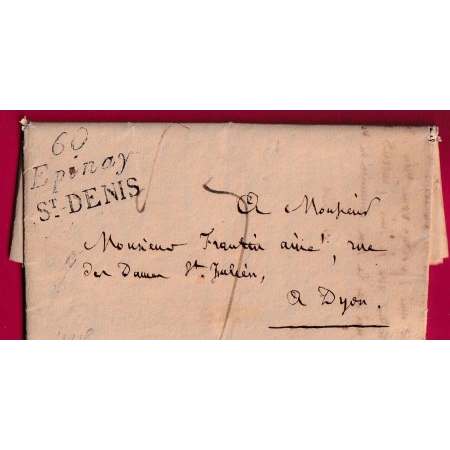 60
Epinay
ST-DENIS
A Monsieur
Monsieur Frantin ainé, rue
des Dames St. Julien,
a Dyon.